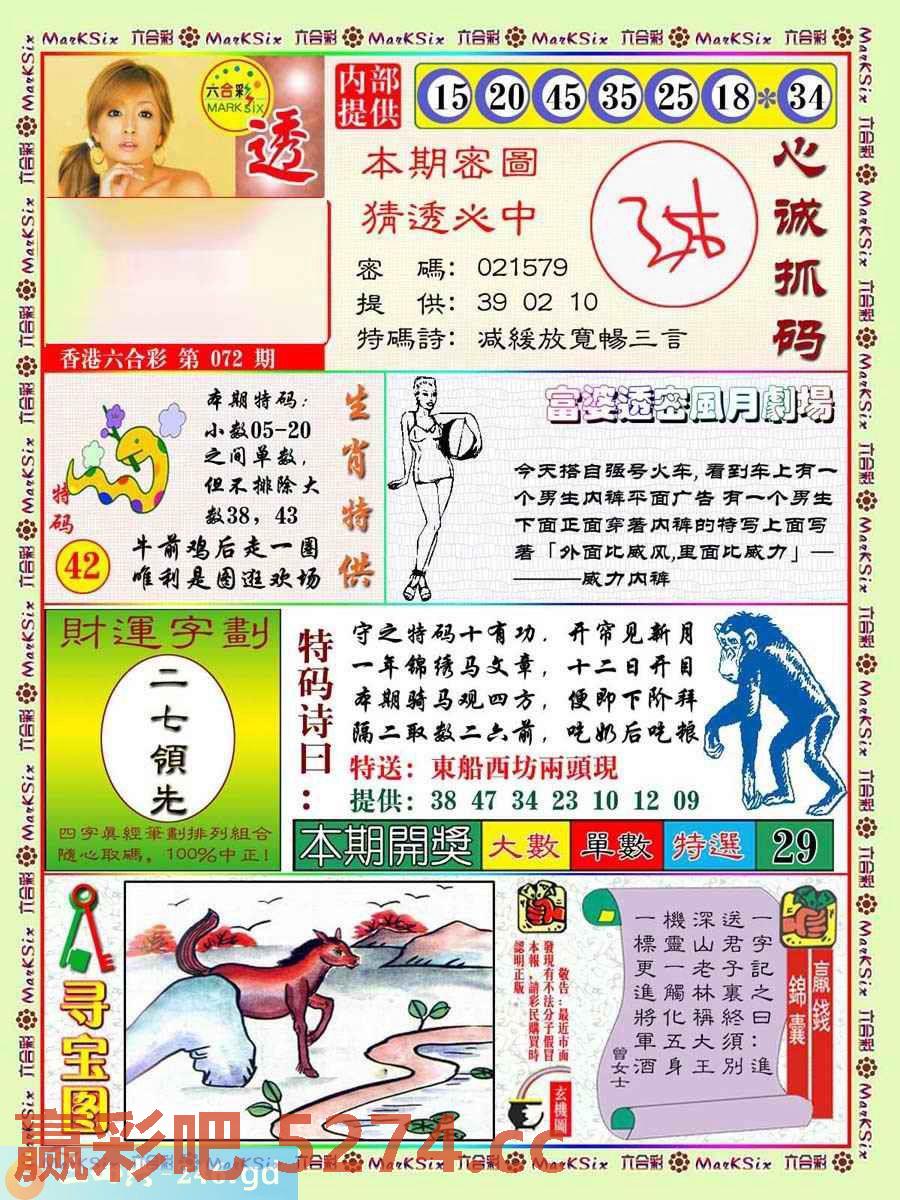 MarKSix 六合彩 MarKSix 六合彩 MarKSix 六合彩 MarKSix 六合彩 MarKSix 六合彩
六合彩
MARK SIX
透
内部
提供
15 20 45 35 25 18 * 34
本期密圖
猜透必中
心诚抓码
密 碼: 021579
提 供: 39 02 10
特碼詩: 减緩放寬暢三言
香港六合彩 第 072 期
本期特码:
小数05-20
之间单数,
但不排除大
数38, 43
生肖特供
特码
42
牛前鸡后走一圈
唯利是图逛欢场
富婆透密風月劇場
今天搭自强号火车, 看到车上有一
个男生内裤平面广告 有一个男生
下面正面穿着内裤的特写上面写
著「外面比威风,里面比威力」—
———威力内裤
財運字劃
二七領先
四字真經筆劃排列組合
隨心取碼, 100%中正!
特码诗曰:
守之特码十有功, 开帘见新月
一年锦绣马文章, 十二日开目
本期骑马观四方, 便即下阶拜
隔二取数二六前, 吃奶后吃粮
特送: 東船西坊兩頭現
提供: 38 47 34 23 10 12 09
本期開獎 大數 單數 特選 29
寻宝图
敬告:最近市面
發現有不法分子假冒
本報,請彩民購買時
認明正版。
玄機圖
一字記之曰:進
送君子裏終須別
深山老林稱大王
機靈一觸化五身
一標更進將軍酒
曾女士
贏錢
錦囊
赢彩吧 5274.cc
MarKSix 六合彩 MarKSix 六合彩 MarKSix 六合彩 MarKSix 六合彩